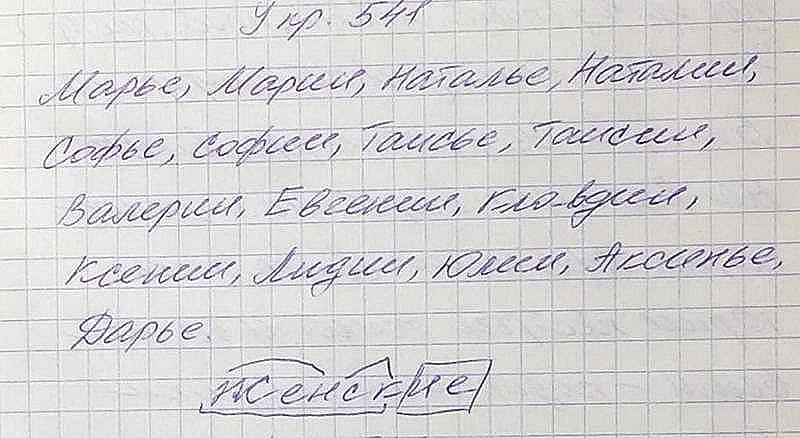 Укр. 541
Марье, Марии, Наталье, Наталии,
Софье, Софии, Таисье, Таисии,
Валерии, Евгении, Клавдии,
Ксении, Лидии, Юлии, Аксинье,
Дарье.
женские